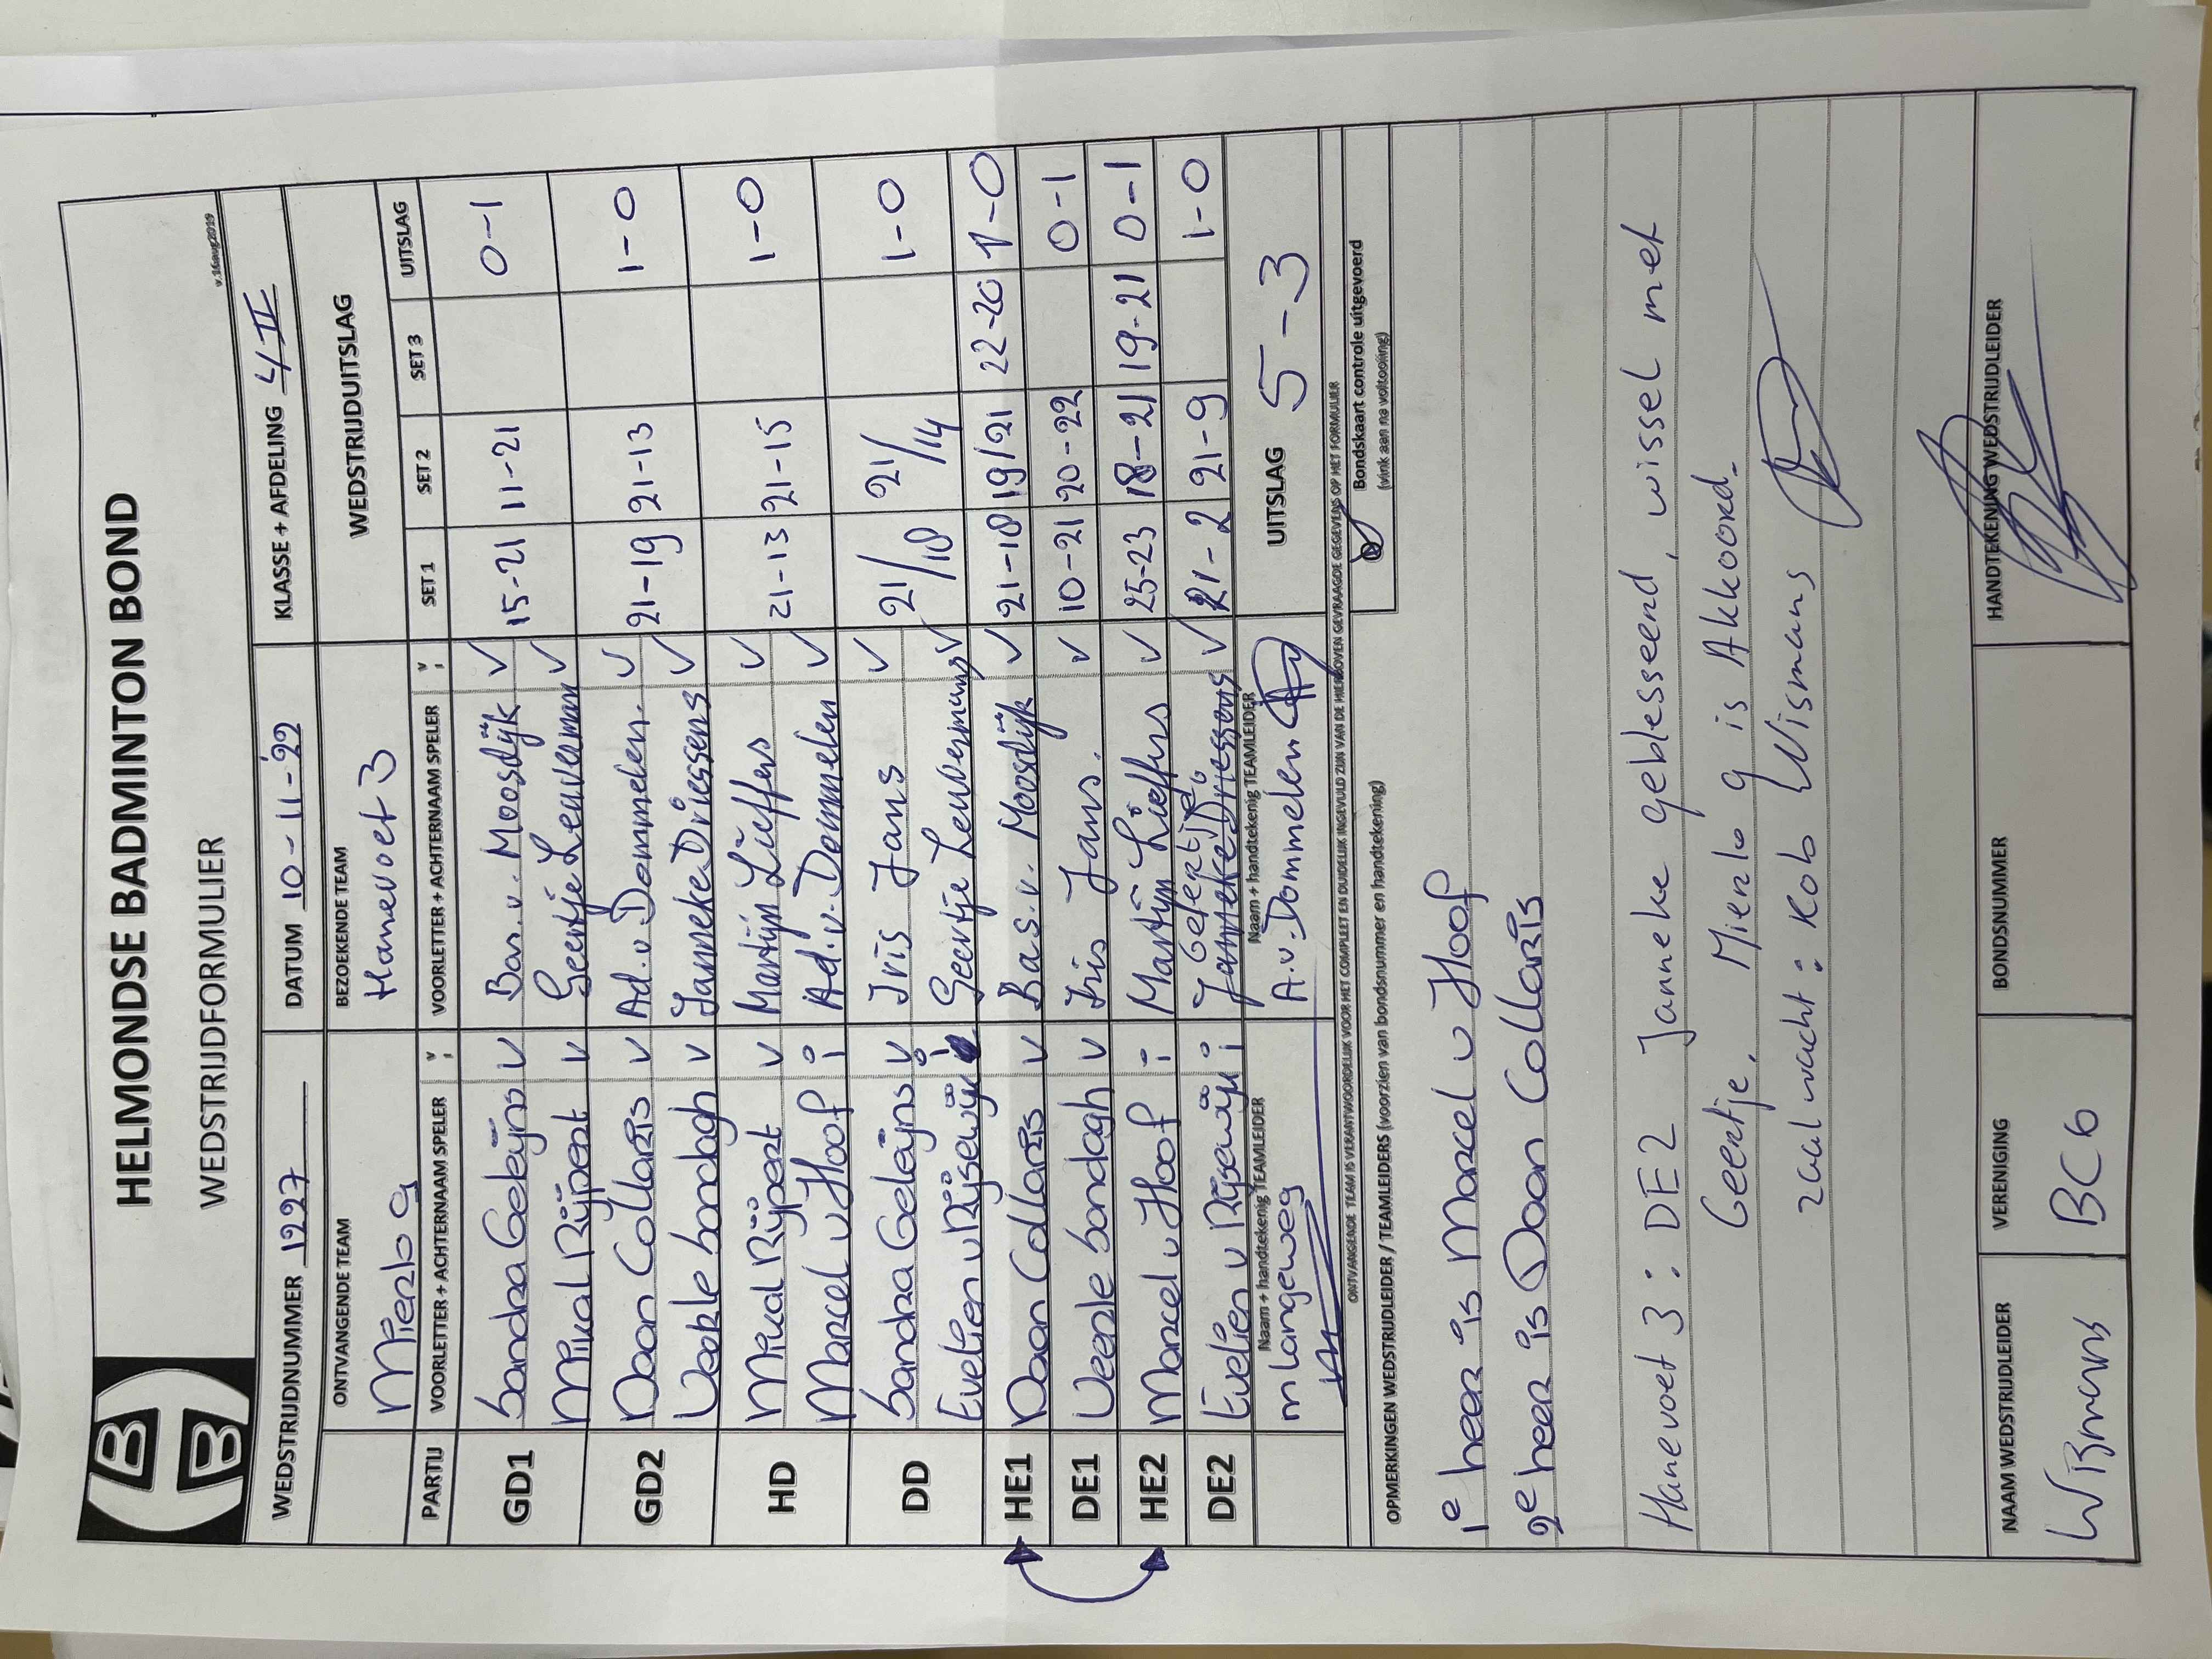 HELMONDSE BADMINTON BOND
WEDSTRIJDFORMULIER
v.16aug2019
WEDSTRIJDNUMMER 1297 DATUM 10-11-'22 KLASSE + AFDELING 4 II
ONTVANGENDE TEAM BEZOEKENDE TEAM WEDSTRIJDUITSLAG
Mierlo 9 Hanevoet 3
PARTIJ VOORLETTER + ACHTERNAAM SPELER V; VOORLETTER + ACHTERNAAM SPELER V; SET 1 SET 2 SET 3 UITSLAG
GD1 Sandra Geleijns V Bas v. Moosdijk V 15-21 11-21 0-1
Mikal Rijpert V Geertje Leuverman V
GD2 Daan Collaris V Ad. v. Dommelen. V 21-19 21-13 1-0
Veerle Sondagh V Janneke Driessens V
HD Mikal Rijpert V Martijn Lieffers V 21-13 21-15 1-0
Marcel v Hoof i Ad. v. Dommelen V
DD Sandra Geleijns V Iris Jans V 21/18 21/14 1-0
Evelien v Rijsewijk i Geertje Leuvermans V
HE1 Daan Collaris V Bas. v. Moosdijk V 21-18 19/21 22-20 1-0
DE1 Veerle Sondagh V Iris Jans. V 10-21 20-22 0-1
HE2 Marcel v Hoof i Martijn Lieffers V 25-23 18-21 19-21 0-1
DE2 Evelien v Rijsewijk i Geertje Janneke Driessens V 21-2 21-9 1-0
Naam + handtekenig TEAMLEIDER Naam + handtekenig TEAMLEIDER
m Langeweg A. v. Dommelen UITSLAG 5-3
ONTVANGENDE TEAM IS VERANTWOORDELIJK VOOR HET COMPLEET EN DUIDELIJK INGEVULD ZIJN VAN DE HIERBOVEN GEVRAAGDE GEGEVENS OP HET FORMULIER
OPMERKINGEN WEDSTRIJDLEIDER / TEAMLEIDERS (voorzien van bondsnummer en handtekening)
Bondskaart controle uitgevoerd
(vink aan na voltooiing)
1e heer is Marcel v Hoof
2e heer is Daan Collaris
Hanevoet 3: DE2 Janneke geblesseerd, wissel met
Geertje. Mierlo 9 is Akkoord.
zaalwacht: Rob Wismans
NAAM WEDSTRIJDLEIDER VERENIGING BONDSNUMMER HANDTEKENING WEDSTRIJDLEIDER